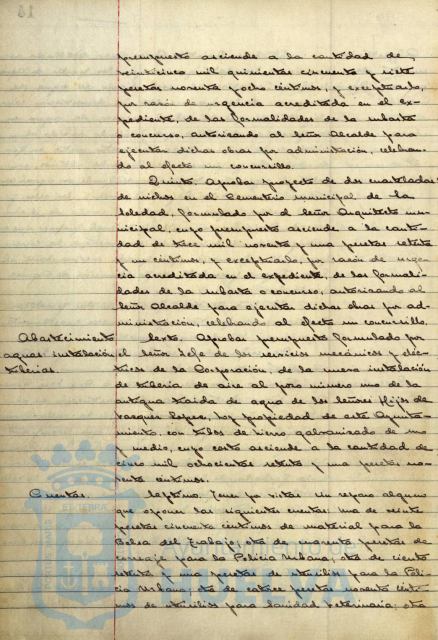 presupuesto asciende a la cantidad de,
veinticinco mil quinientas cincuenta y siete
pesetas noventa y ocho céntimos, y exceptuarlo,
por razón de urgencia acreditada en el ex-
pediente, de las formalidades de la subasta
o concurso, autorizando al Señor Alcalde para
ejecutar dichas obras por administración, celebran-
do al efecto un concursillo.
Quinto. Aprobar proyecto de dos cuarteladas
de nichos en el Cementerio municipal de la
Soledad, formulado por el Señor Arquitecto mu-
nicipal, cuyo presupuesto asciende a la canti-
dad de trece mil noventa y una pesetas setenta
y un céntimos, y exceptuarlo, por razón de urgen-
cia acreditada en el expediente, de las formali-
dades de la subasta o concurso, autorizando al
Señor Alcalde para ejecutar dichas obras por ad-
ministración, celebrando al efecto un concursillo.
Abastecimiento
aguas, instalación
tuberías.
Sexto. Aprobar presupuesto formulado por
el Señor Jefe de los servicios mecánicos y eléc-
tricos de la Corporación, de la nueva instalación
de tubería de aire al pozo número uno de la
antigua traida de agua de los Señores Hijos de
Vazquez Lopez, hoy propiedad de este Ayunta-
miento, con tubos de hierro galvanizado de una
y medio, cuyo costo asciende a la cantidad de
cinco mil ochocientas setenta y una pesetas no-
venta céntimos.
Cuentas.
Septimo. Tener por vistas sin reparo alguno
que oponer las siguientes cuentas: una de veinte
pesetas cincuenta céntimos de material para la
Bolsa del Trabajo; otra de cuarenta pesetas de
correaje para la Policia Urbana; otra de ciento
setenta y una pesetas de utensilios para la Poli-
cia Urbana; otra de catorce pesetas noventa cénti-
mos de utensilios para Sanidad Veterinaria; otra